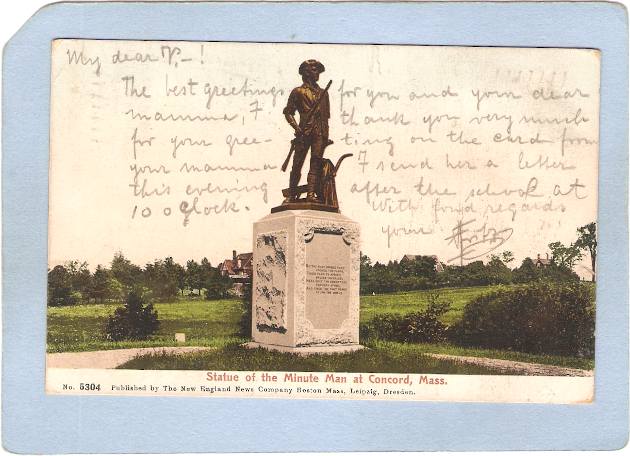 My dear V.–!
The best greetings for you and your dear
mamma, I thank you very much
for your gree- ting on the card from
your mamma I send her a letter
this evening after the school at
10 o'clock. With fond regards
your Fritz
Statue of the Minute Man at Concord, Mass.
No. 5304 Published by The New England News Company Boston Mass, Leipzig, Dresden.